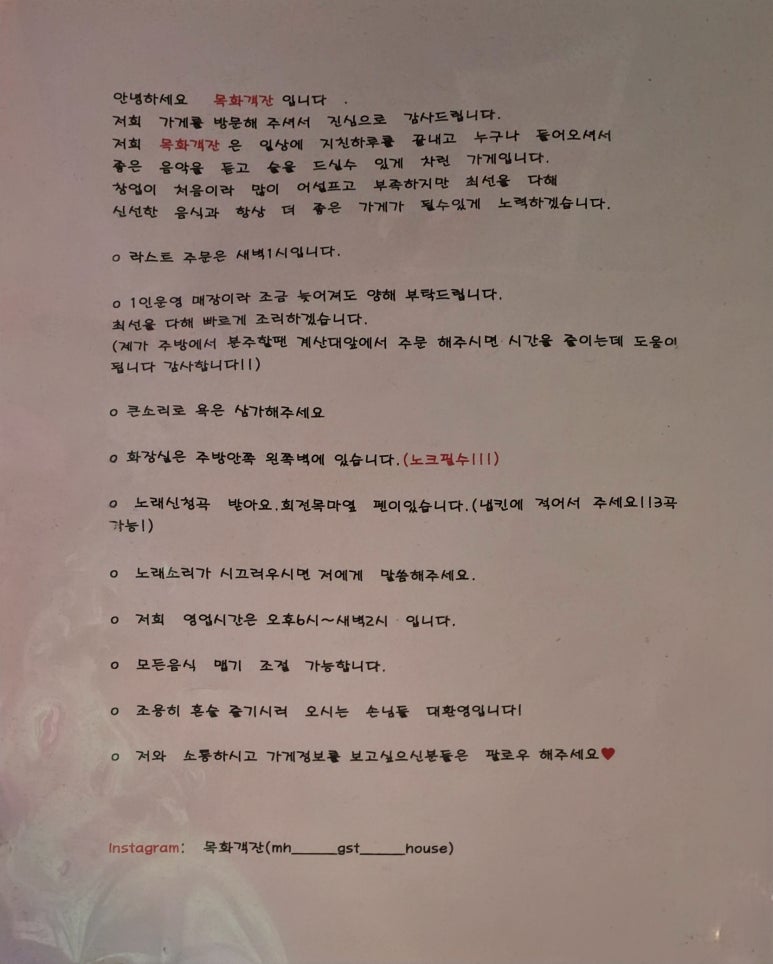 안녕하세요 목화객잔 입니다 .
저희 가게를 방문해 주셔서 진심으로 감사드립니다.
저희 목화객잔 은 일상에 지친하루를 끝내고 누구나 들어오셔서
좋은 음악을 듣고 술을 드실수 있게 차린 가게입니다.
창업이 처음이라 많이 어설프고 부족하지만 최선을 다해
신선한 음식과 항상 더 좋은 가게가 될수있게 노력하겠습니다.
o 라스트 주문은 새벽1시입니다.
o 1인운영 매장이라 조금 늦어져도 양해 부탁드립니다.
최선을 다해 빠르게 조리하겠습니다.
(제가 주방에서 분주할땐 계산대앞에서 주문 해주시면 시간을 줄이는데 도움이
됩니다 감사합니다!!)
o 큰소리로 욕은 삼가해주세요
o 화장실은 주방안쪽 왼쪽벽에 있습니다.(노크필수!!!)
o 노래신청곡 받아요.회전목마옆 펜이있습니다.(냅킨에 적어서 주세요!!3곡
가능!)
o 노래소리가 시끄러우시면 저에게 말씀해주세요.
o 저희 영업시간은 오후6시~새벽2시 입니다.
o 모든음식 맵기 조절 가능합니다.
o 조용히 혼술 즐기시러 오시는 손님들 대환영입니다!
o 저와 소통하시고 가게정보를 보고싶으신분들은 팔로우 해주세요♥
Instagram: 목화객잔(mh_____gst_____house)